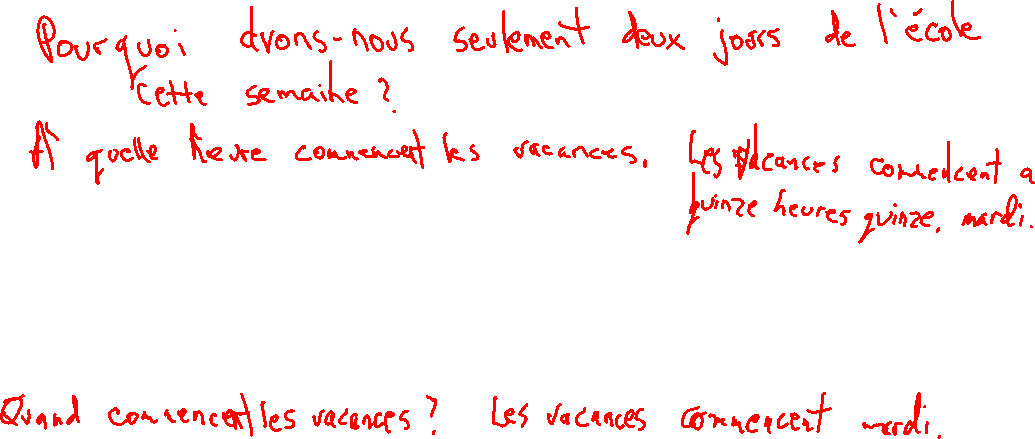 Pourquoi avons-nous seulement deux jours de l'école
cette semaine?
À quelle heure commencent les vacances. Les vacances commencent a
quinze heures quinze, mardi.
Quand commencent les vacances? Les vacances commencent mardi.